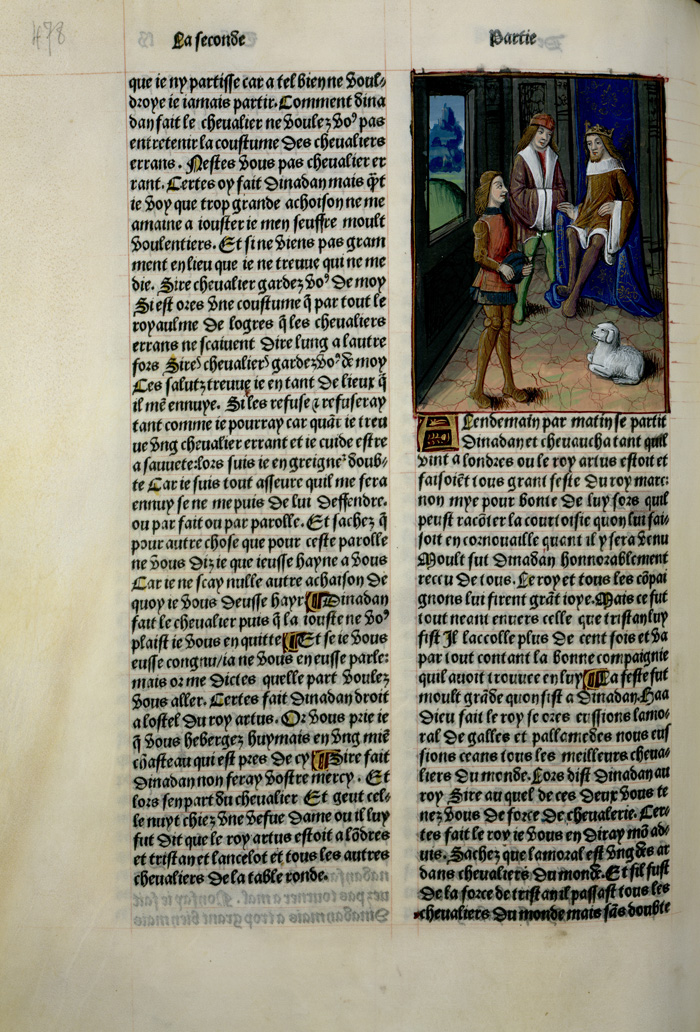 478
La seconde
Partie
que ie ny partisse car a tel bien ne voul-
droye ie iamais partir. Comment dina
dan fait le chevalier ne voulez voꝰ pas
entretenir la coustume des chevaliers
errans. Nestes vous pas chevalier er
rant. Certes oy fait dinadan mais qñt
ie voy que trop grande achoison ne me
amaine a iouster ie men seuffre moult
voulentiers. Et si ne viens pas gram
ment en lieu que ie ne treuue qui ne me
die. Sire chevalier gardez voꝰ de moy
Si est ores vne coustume q̃ par tout le
royaulme de logres q̃ les chevaliers
errans ne scaivent dire lung a lautre
fors Sire chevalier gardez voꝰ de moy
Ces salutz treuue ie en tant de lieux q̃
il mẽ ennuye. Si les refuse ⁊ refuseray
tant comme ie pourray car quãt ie treu
ue vng chevalier errant et ie cuide estre
a sauuete: lors suis ie en greigneꝰ doub-
te Car ie suis tout asseure quil me fera
ennuy se ne me puis de lui deffendre.
ou par fait ou par parolle. Et sachez q̃
pour autre chose que pour ceste parolle
ne vous diz ie que ieusse hayne a vous
Car ie ne scay nulle autre achaison de
quoy ie vous deusse hayr ¶ Dinadan
fait le chevalier puis q̃ la iouste ne voꝰ
plaist ie vous en quitte ¶ Et se ie vous
eusse congnu/ia ne vous en eusse parle:
mais or me dictes quelle part voulez
vous aller. Certes fait dinadan droit
a lostel du roy artus. Or vous prie ie
q̃ vous hebergez huymais en vng miẽ
chasteau qui est pres de cy ¶ Sire fait
dinadan non feray vostre mercy. Et
lors sen part du chevalier Et geut cel-
le nuyt chiez vne vefue dame ou il luy
fut dit que le roy artus estoit a lõdres
et tristan et lancelot et tous les autres
chevaliers de la table ronde.
Lendemain par matin se partit
Dinadan et chevaucha tant quil
vint a londres ou le roy artus estoit et
faisoiẽt tous grant feste du roy marc:
non mye pour bonte de luy fors quil
peust racõter la courtoisie quon lui fai-
soit en cornouaille quant il y sera venu
Moult fut dinadan honnorablement
receu de tous. Le roy et tous les cõpai
gnons lui firent grãt ioye. Mais ce fut
tout neant envers celle que tristan luy
fist Il laccolle plus de cent fois et va
par tout contant la bonne compaignie
quil auoit trouuee en luy ¶ La feste fut
moult grãde quon fist a dinadan. Haa
dieu fait le roy se ores eussions lamo-
ral de galles et pallamedes nous eus
sions ceans tous les meilleurs cheua-
liers du monde. Lors dist dinadan au
roy Sire au quel de ces deux vous te
nez vous de force de chevalerie. Cer-
tes fait le roy ie vous en diray mõ ad-
uis. Sachez que lamoral est vng des ar
dans chevaliers du monde. Et sil fust
de la force de tristan il passast tous les
chevaliers du monde mais sãs doubte